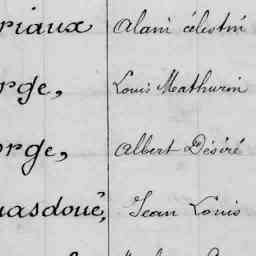 riaux Alain célestin
rge, Louis Mathurin
orge, Albert Désiré
uasdoué, Jean Louis